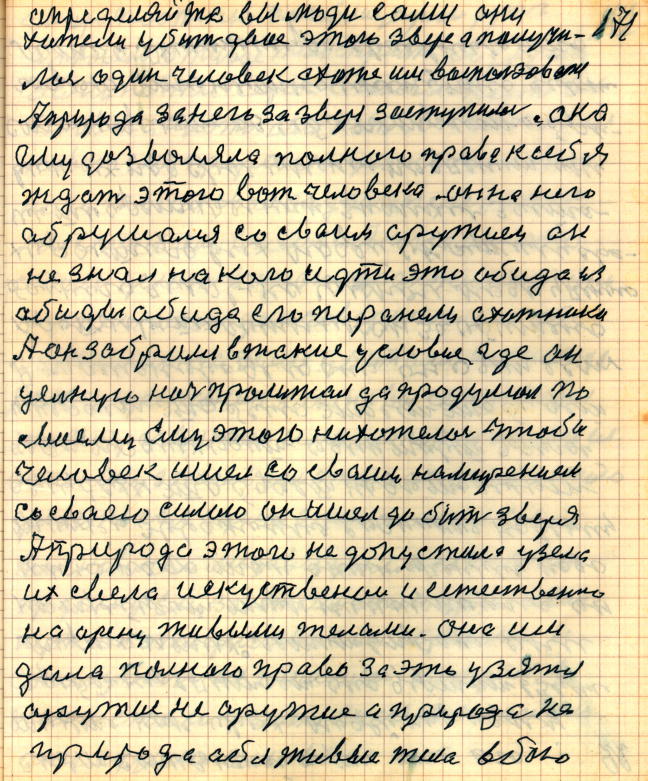 определяйте вы люди сами они 171
хотели убит двое этого звере а получи-
лся один человек охоте им воспользовалс
А природа за него за зверя заступилас. она
ему дозволяла полного права к себя
ждат этого вот человека. он на него
абрушался со сваим аружием он
не знал на кого идти это обида из
абиды обида его паранели охотника
А он забрался в такие условие, где он
целную ноч пролижал да продумал по
своему ему этого нихотелос чтоба
человек шиел со сваим намирением
со сваею силаю он шиел да бит зверя
А природа этого не допустила узела
их свела искуственои и естественно
на арену живыми телами. она им
дала полного право за эть узятся
аружие не аружие а природа на
природа аба живые тела в бою